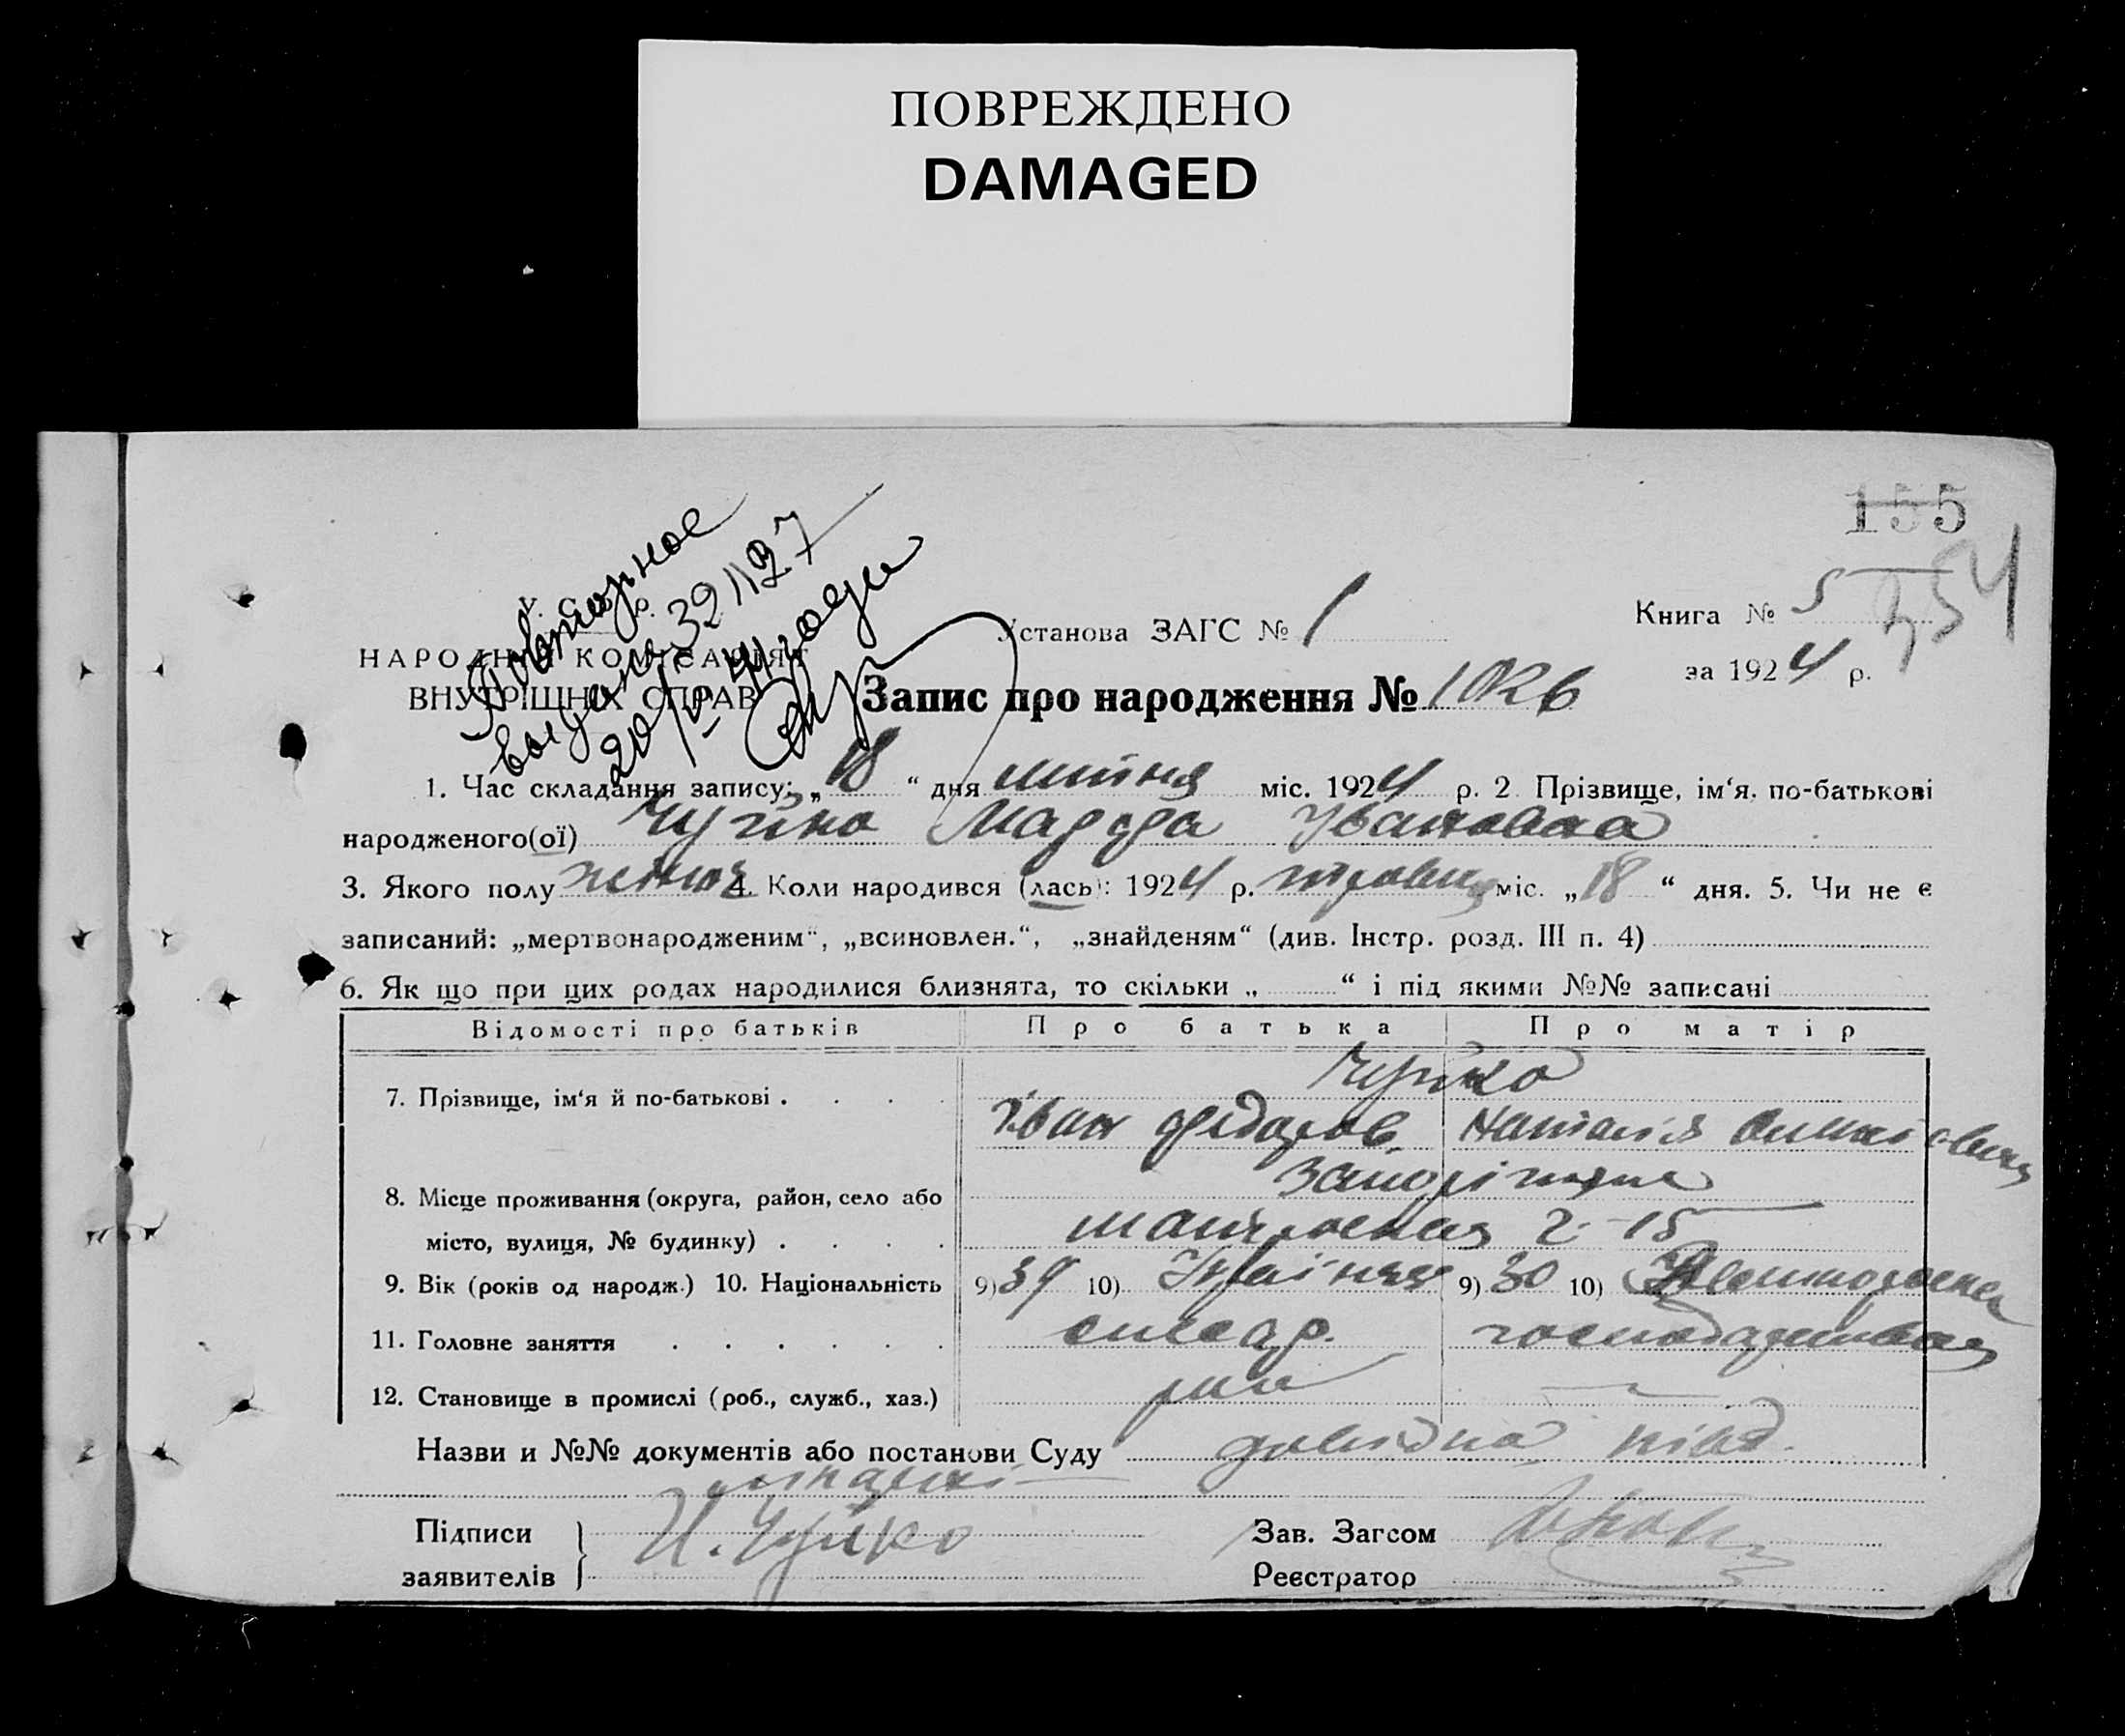 ПОВРЕЖДЕНО
DAMAGED
155
354
Повторное
выдано 321127
20/IV 41 года
У. С. Р. Р.
НАРОДНІЙ КОМІСАРІЯТ
ВНУТРІШНІХ СПРАВ
Установа ЗАГС № 1
Книга № 5
за 1924 р.
Запис про народження № 1026
1. Час складання запису: „18“ дня липня міс. 1924 р. 2 Прізвище, ім‘я, по-батькові
народженого(ої) Чуйко Мар Ивановна
3. Якого полу жіноч 4. Коли народився (лась): 1924 р. травня міс. „18“ дня. 5. Чи не є
записаний: „мертвонародженим“, „всиновлен.“, „знайденям“ (див. Інстр. розд. III п. 4)
6. Як що при цих родах народилися близнята, то скільки „ “ і під якими №№ записані
Відомості про батьків Про батька Про матір
Чуйко
7. Прізвище, ім‘я й по-батькові .
Іван Федоров Наталія
Запоріжжя
8. Місце проживання (округа, район, село або
місто, вулиця, № будинку) . 2 - 15
9. Вік (років од народж.) 10. Національність 9) 39 10) Україн 9) 30 10)
11. Головне заняття слесар. господарства
12. Становище в промислі (роб., служб., хаз.)
Назви и №№ документів або постанови Суду довідка
Підписи
заявителів
И. Чуйко
Зав. Загсом
Реєстратор